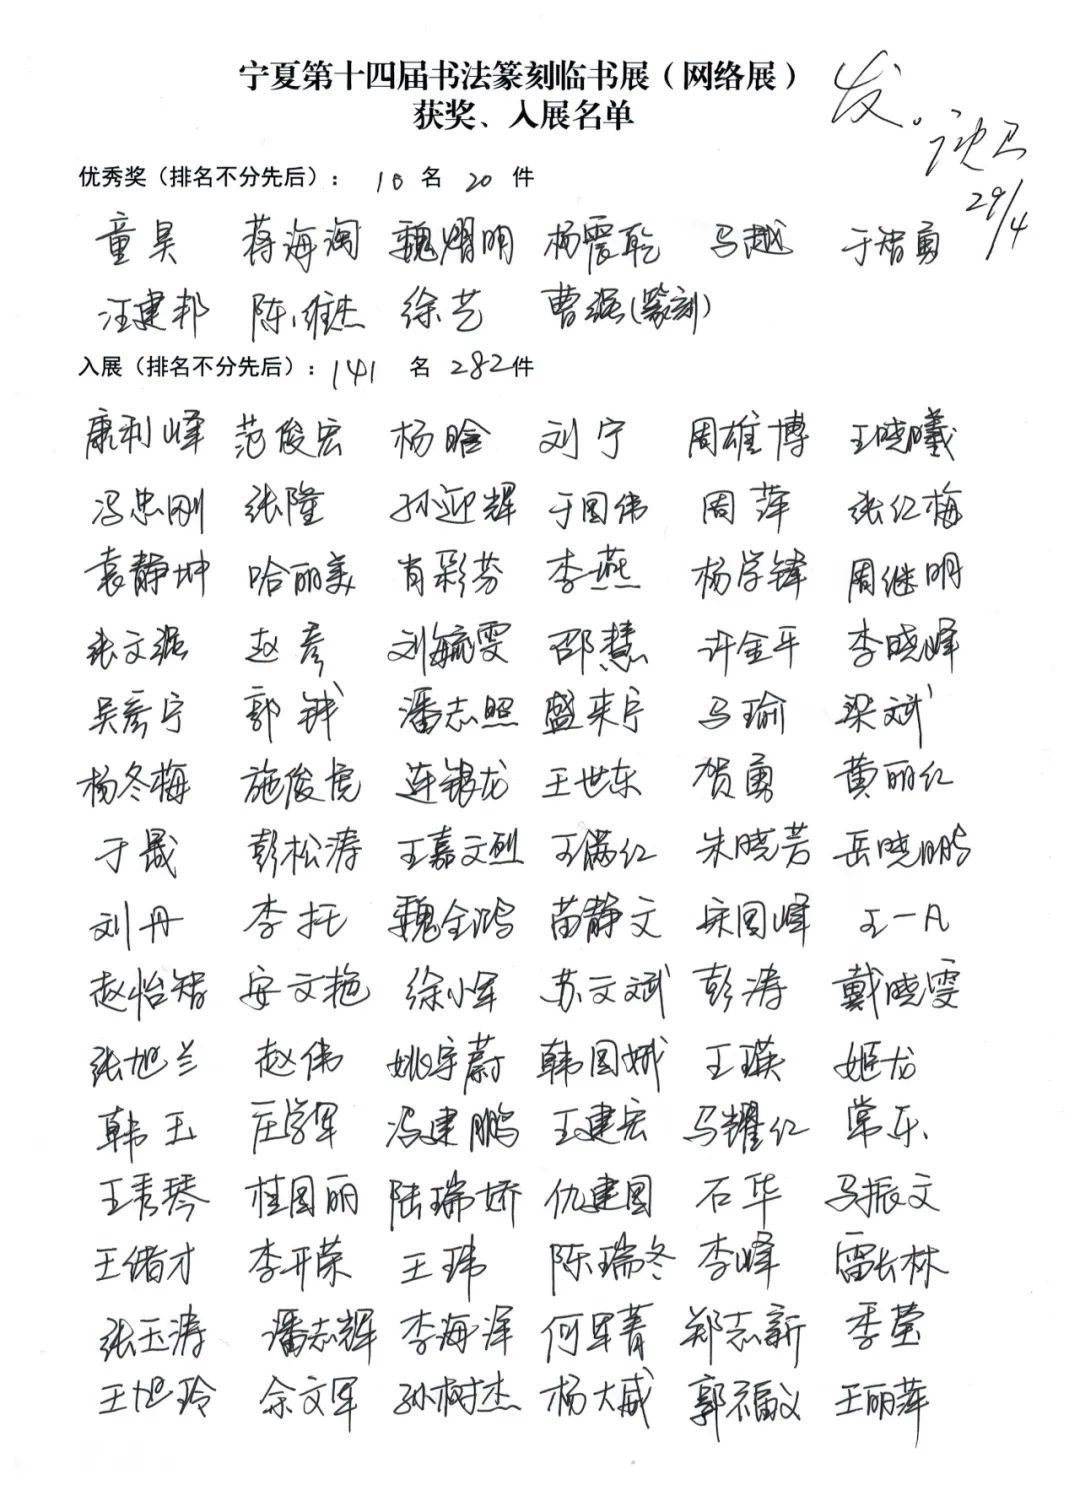 宁夏第十四届书法篆刻临书展（网络展）
获奖、入展名单
发。
29/4
优秀奖（排名不分先后）： 10 名 20 件
童昊 蒋海洵 魏熠明 杨震乾 马越 于智勇
汪建邦 陈维杰 徐艺 曹强（篆刻）
入展（排名不分先后）：141 名 282件
康利峰 范俊宏 杨晗 刘宁 周雄博 王晓曦
冯忠刚 张隆 孙迎辉 于国伟 周萍 张红梅
袁静坤 哈丽美 肖彩芬 李燕 杨学锋 周继明
张文强 赵彦 刘毓雯 邵慧 许金平 李晓峰
吴彦宁 郭钺 潘志照 盛来宁 马瑜 梁斌
杨冬梅 施俊虎 连银龙 王世东 贺勇 黄丽红
于晟 彭松涛 王嘉文烈 王满红 朱晓芳 岳晓鹏
刘丹 李托 魏全鸿 苗静文 宋国峰 王一凡
赵怡智 安文艳 徐小军 苏文斌 彭涛 戴晓雯
张旭兰 赵伟 姚宇蔚 韩国娥 王瑛 姬龙
韩玉 庄学军 冯建鹏 王建宏 马耀红 常乐
王秀琴 桂国丽 陆瑞娇 仇建国 石华 马振文
王储才 李开荣 王玮 陈瑞冬 李峰 雷长林
张玉涛 潘志辉 李海洋 何军菁 郑志新 李莹
王旭玲 余文军 孙树杰 杨大威 郭福义 王丽萍